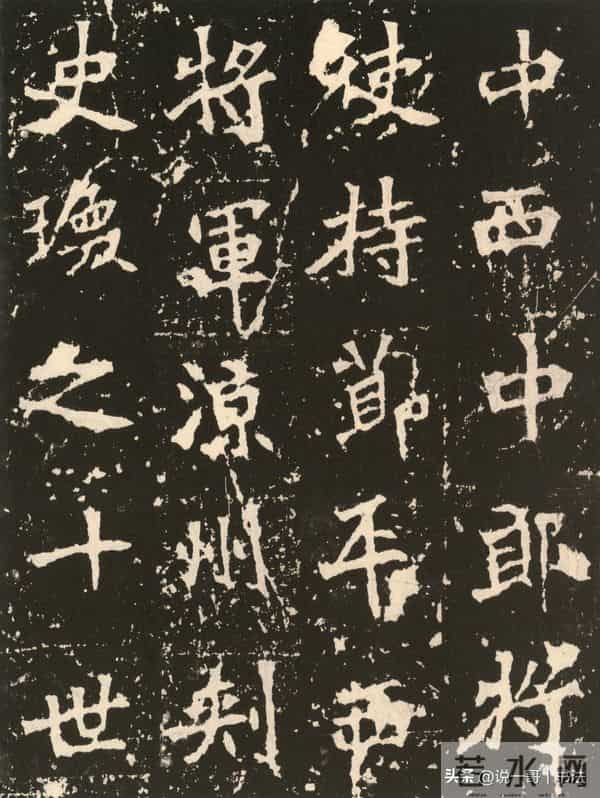 中西中郎將
使持節平西
將軍涼州刺
史瑍之十世
头条 @说一哥|书法